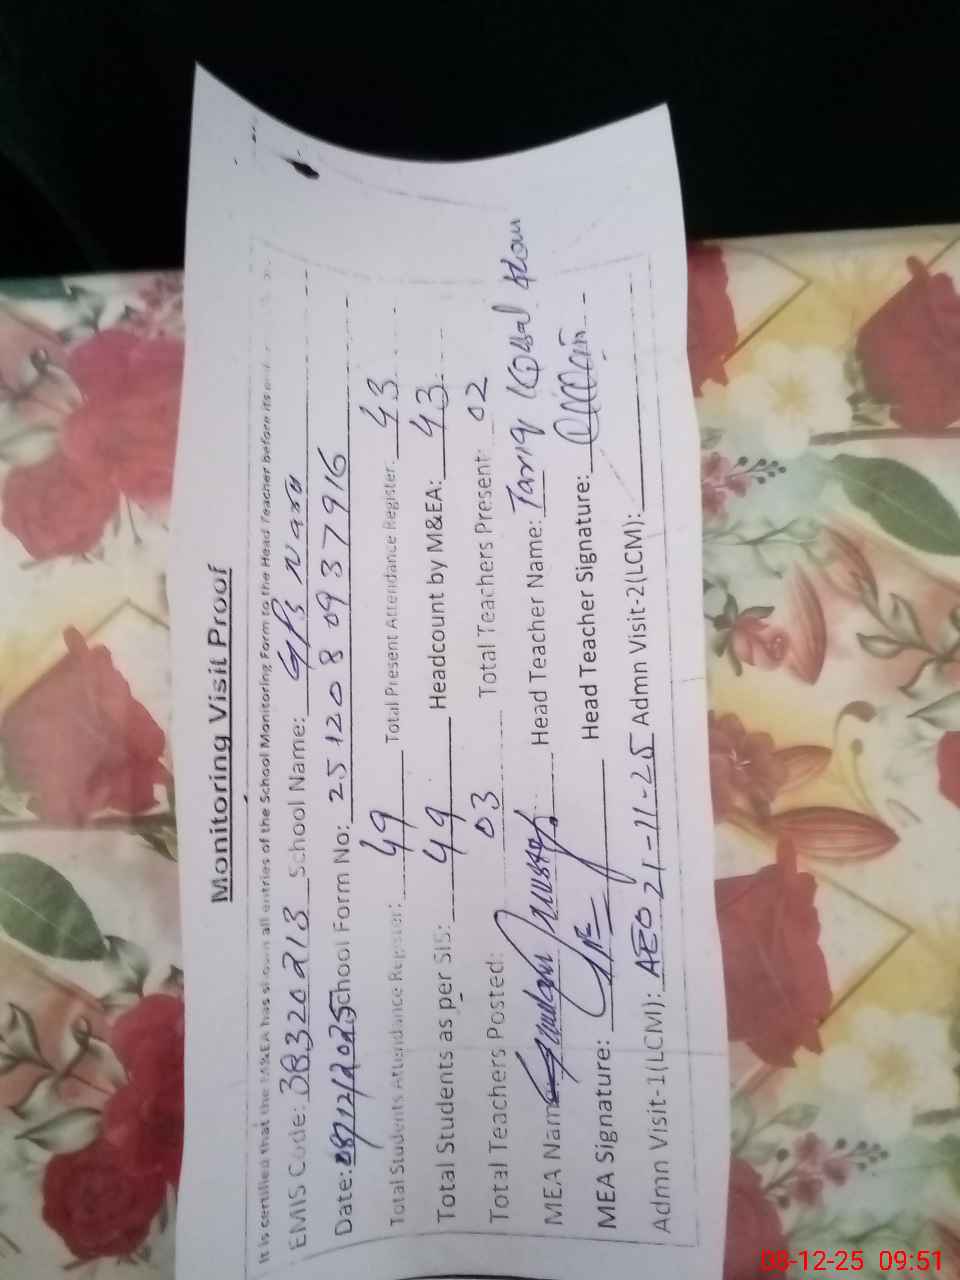 Monitoring Visit Proof
It is certified that the M&EA has shown all entries of the School Monitoring Form to the Head Teacher before its
EMIS Code: 38320213 School Name: GPS Nara
Date: 08/12/2025 School Form No: 251208 09379 16
Total Students Attendance Register: 49 Total Present Attendance Register: 43
Total Students as per SIS: 49 Headcount by M&EA: 43
Total Teachers Posted: 03 Total Teachers Present: 02
MEA Name: Head Teacher Name: Tariq
MEA Signature: Head Teacher Signature:
Admn Visit-1(LCM): AEO 21-11-25 Admn Visit-2(LCM):
08-12-25 09:51